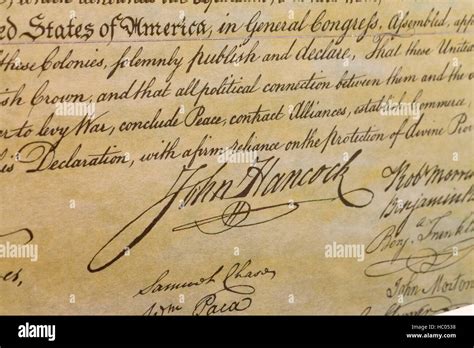 ed States of America, in General Congress, Assembled, app
these Colonies, solemnly publish and declare, That these United
ish Crown, and that all political connection between them and the
er to levy War, conclude Peace, contract Alliances, establish Commerc
is Declaration, with a firm reliance on the Protection of divine Pro
John Hancock
Robt Morris
Benjamin
Benj. Frankl
John Morton
Samuel Chase
Wm Paca
alamy
Image ID: HC0538
www.alamy.com